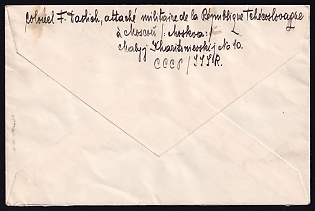 Colonel F. Dadich, attaché militaire de la République Tchécoslovaque
à Moscou /: Moskva :/
Malyj Kharitonievskij No 10.
СССР / SSSR.